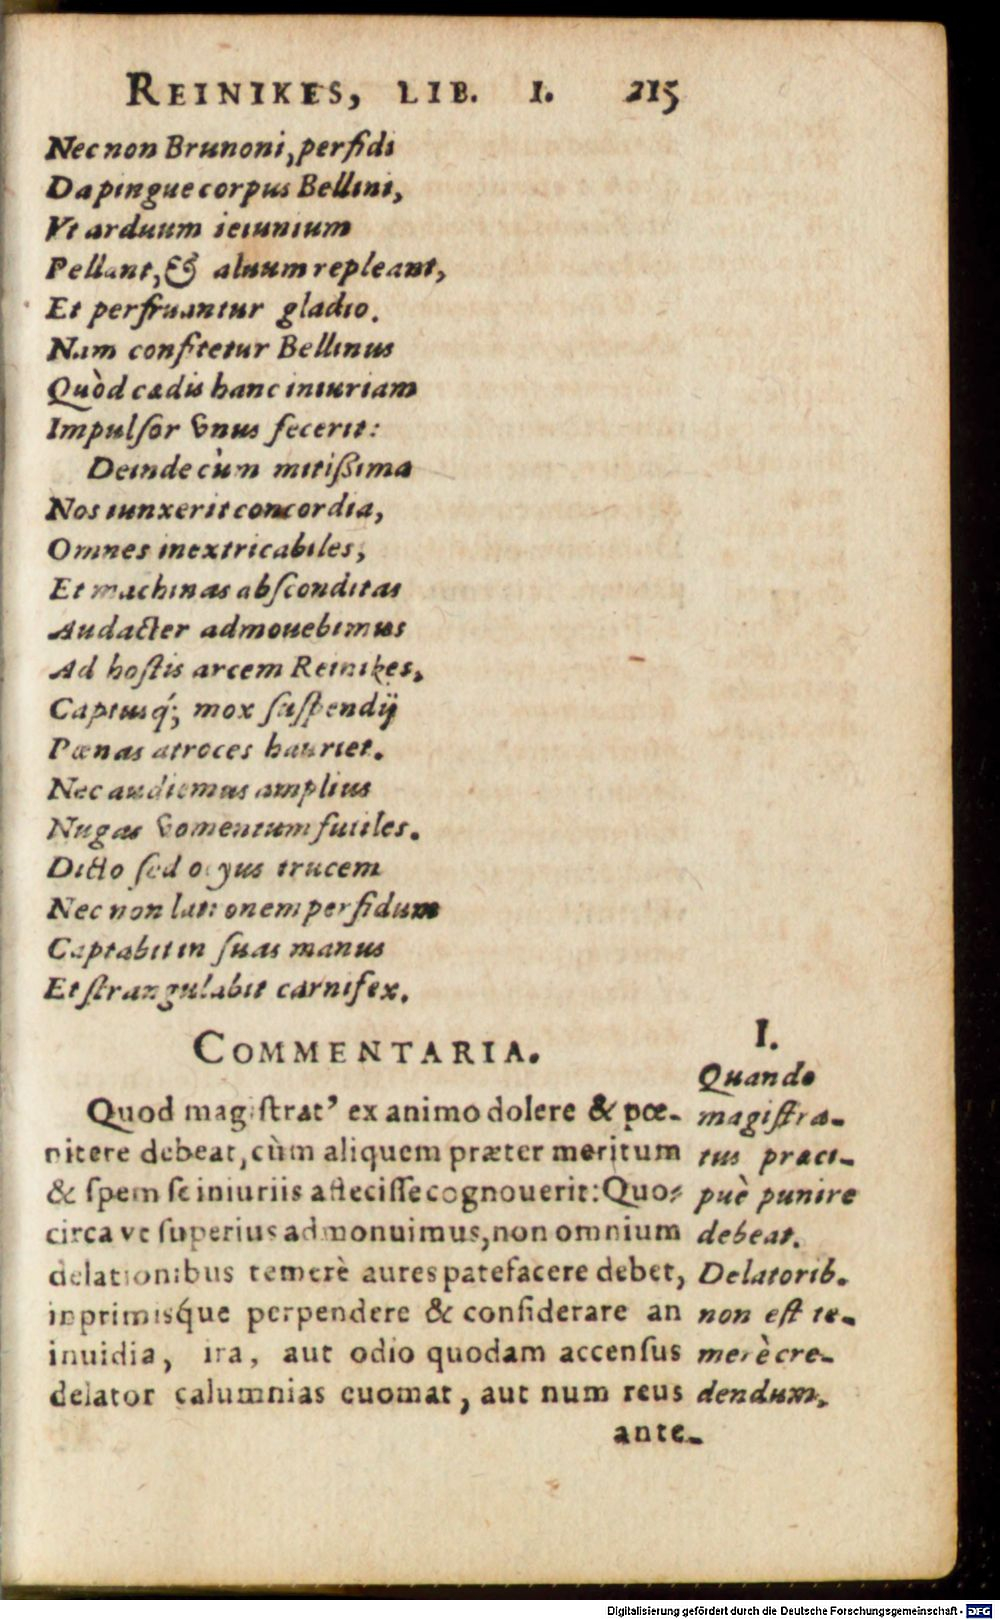 REINIKES, LIB. I. 215
Nec non Brunoni, perfidi
Da pingue corpus Bellini,
Vt arduum ieiunium
Pellant, & aluum repleant,
Et perfruantur gladio.
Nam confitetur Bellinus
Quòd cædis hanc iniuriam
Impulſor vnus fecerit:
Deinde cùm mitißima
Nos iunxerit concordia,
Omnes inextricabiles,
Et machinas abſconditas
Audacter admouebimus
Ad hoſtis arcem Reinikes,
Captusq́; mox ſuſpendij
Pœnas atroces hauriet.
Nec audiemus amplius
Nugas vomentum futiles.
Dicto ſed ocyus trucem
Nec non latronem perfidum
Captabit in ſuas manus
Et ſtrangulabit carnifex.
COMMENTARIA.
Quod magiſtrat' ex animo dolere & pœ-
nitere debeat, cùm aliquem præter meritum
& ſpem ſe iniuriis affeciſſe cognouerit: Quo-
circa vt ſuperius admonuimus, non omnium
delationibus temerè aures patefacere debet,
inprimisq́ue perpendere & conſiderare an
inuidia, ira, aut odio quodam accenſus
delator calumnias euomat, aut num reus
ante-
I.
Quando
magiſtra-
tus præci-
puè punire
debeat.
Delatorib.
non eſt te-
merè cre-
dendum.
Digitalisierung gefördert durch die Deutsche Forschungsgemeinschaft - DFG